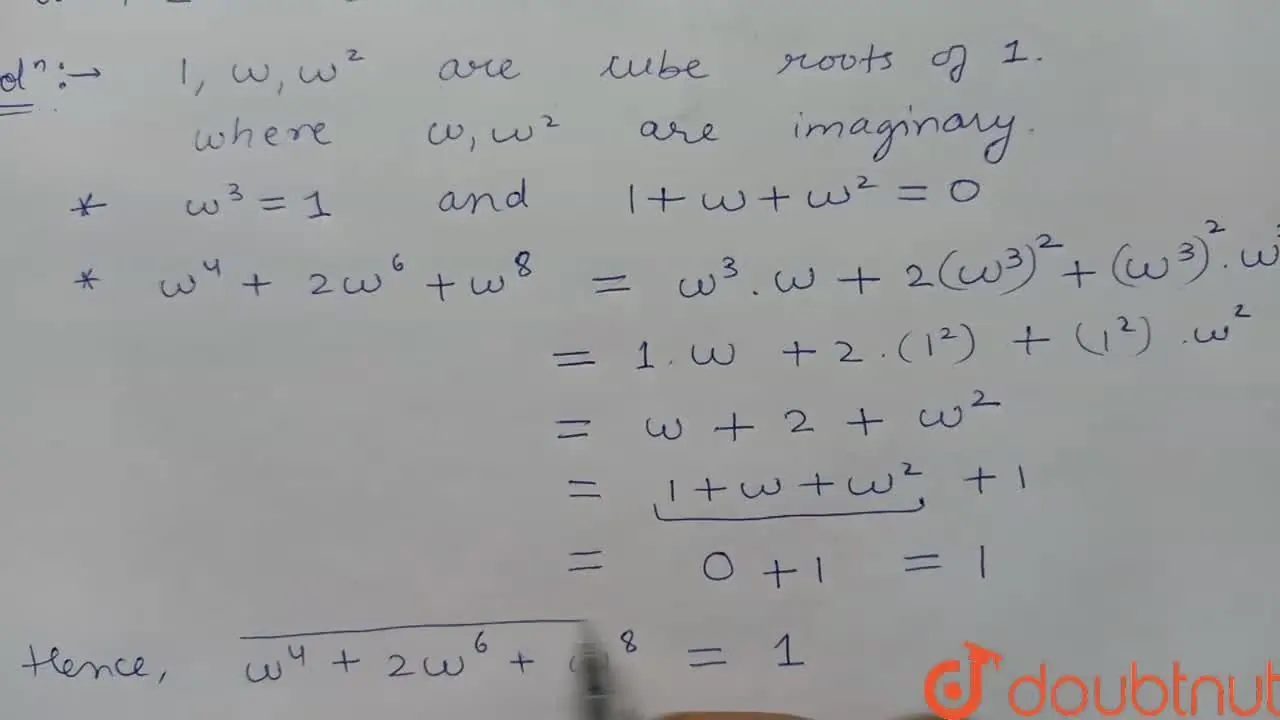 olⁿ :→ 1, ω, ω² are cube roots of 1.
where ω, ω² are imaginary.
* ω³ = 1 and 1 + ω + ω² = 0
* ω⁴ + 2ω⁶ + ω⁸ = ω³ . ω + 2(ω³)² + (ω³)² . ω
= 1 . ω + 2 . (1²) + (1²) . ω²
= ω + 2 + ω²
= 1 + ω + ω² + 1
= 0 + 1 = 1
Hence, ω⁴ + 2ω⁶ + ⁸ = 1
doubtnut